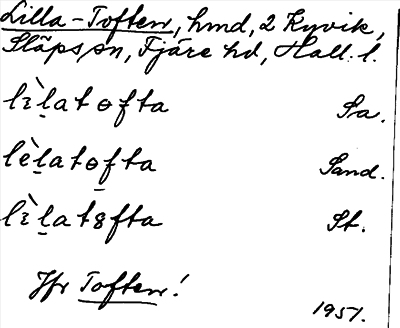 Lilla-Toften, hmd, 2 Kyvik,
Släps sn, Fjäre hd, Hall. l.
lɪ̀l̠atɵfta Sa.
lèl̠atɵfta Sand.
lɪ̀l̠at8fta St.
Jfr Toften!
1951.